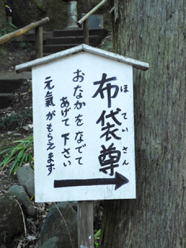 布袋尊
ほていそん
おなかをなでて
あげて下さい
元氣がもらえます